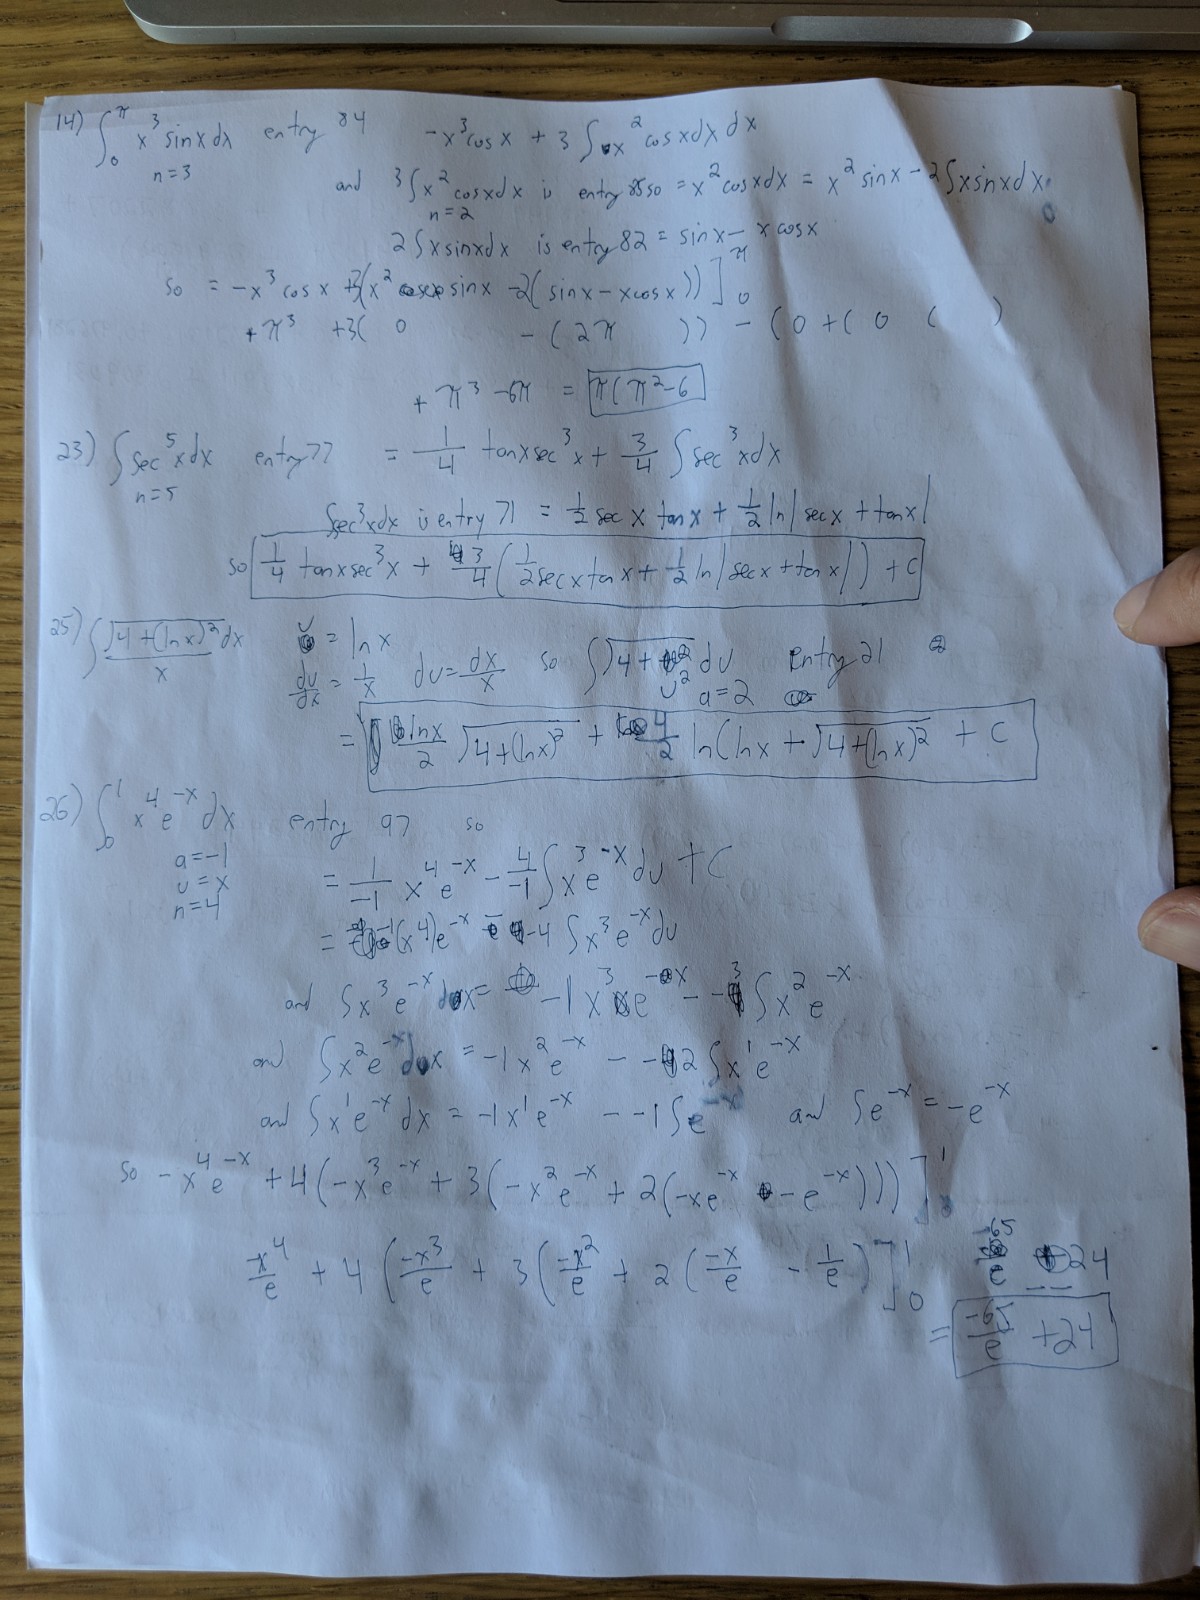 14) ∫₀^π x³ sinx dx entry 84 -x³cosx + 3∫x² cosxdx dx
n=3 and 3∫x² cosxdx is entry 85 so = x² cosxdx = x² sinx - 2∫xsinxdx
n=2
2∫xsinxdx is entry 82 = sinx - xcosx
so = -x³cosx + 3(x² sinx - 2(sinx - xcosx))]₀^π
+π³ +3( 0 - (2π )) - (0 + ( 0 ( )
+ π³ - 6π = π(π² - 6
23) ∫sec⁵xdx entry 77 = 1/4 tanxsec³x + 3/4 ∫sec³xdx
n=5
∫sec³xdx is entry 71 = 1/2 sec x tan x + 1/2 ln|secx + tanx|
so 1/4 tanxsec³x + 3/4(1/2secxtanx + 1/2 ln|secx + tanx|) + C
25) ∫√(4+(lnx)²)dx / x u = lnx
du/dx = 1/x du = dx/x so ∫√(4+u²) du entry 21
a=2
= lnx/2 √(4+(lnx)²) + 4/2 ln(lnx + √(4+(lnx)²) + C
26) ∫₀¹ x⁴e⁻ˣdx entry 97 so
a=-1
u=x
n=4
= 1/-1 x⁴e⁻ˣ - 4/-1 ∫x³e⁻ˣdu + C
= -1(x⁴)e⁻ˣ - -4 ∫x³e⁻ˣdu
and ∫x³e⁻ˣdx = -1x³e⁻ˣ - -3∫x²e⁻ˣ
and ∫x²e⁻ˣdx = -1x²e⁻ˣ - -2∫x¹e⁻ˣ
and ∫x¹e⁻ˣdx = -1x¹e⁻ˣ - -1∫e⁻ˣ and ∫e⁻ˣ = -e⁻ˣ
so -x⁴e⁻ˣ + 4(-x³e⁻ˣ + 3(-x²e⁻ˣ + 2(-xe⁻ˣ - e⁻ˣ)))]₀¹
-x⁴/e + 4(-x³/e + 3(-x²/e + 2(-x/e - 1/e)]₀¹ -65/e 24
= -65/e + 24